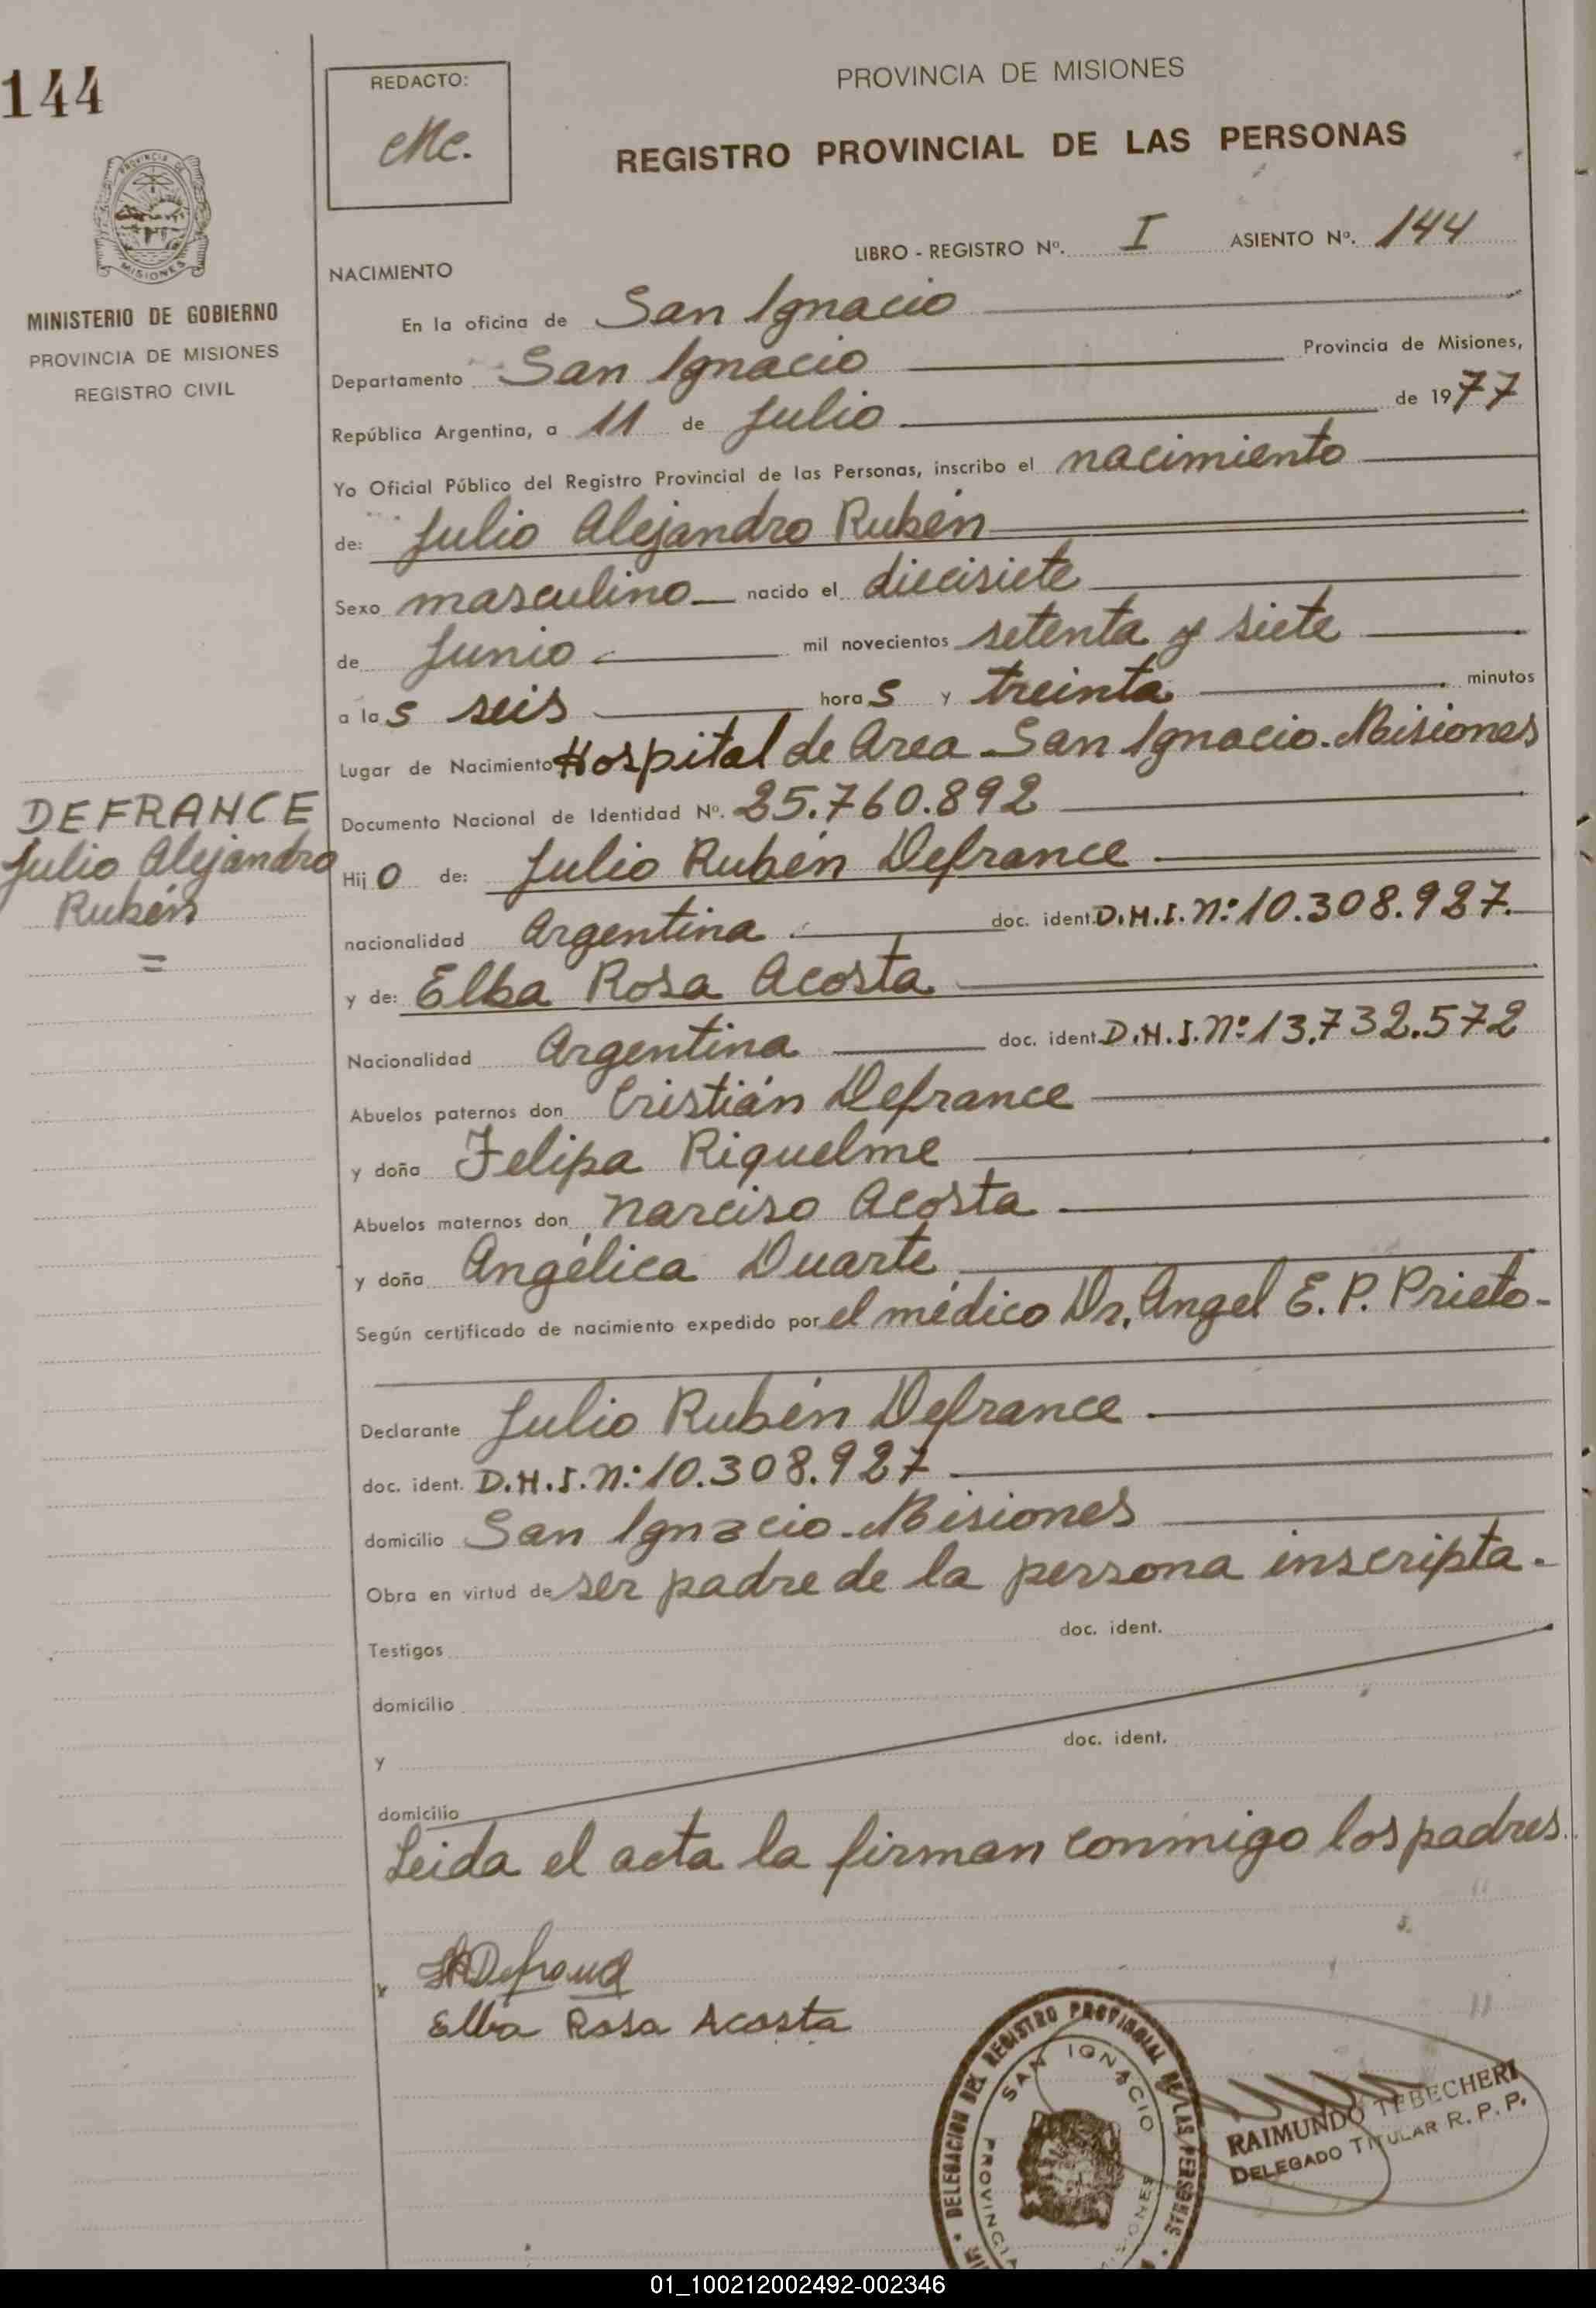 144
REDACTO:
PROVINCIA DE MISIONES
REGISTRO PROVINCIAL DE LAS PERSONAS
PROVINCIA DE
MISIONES
MINISTERIO DE GOBIERNO
PROVINCIA DE MISIONES
REGISTRO CIVIL
LIBRO - REGISTRO Nº. I ASIENTO Nº. 144
NACIMIENTO
En la oficina de San Ignacio
Departamento San Ignacio Provincia de Misiones,
República Argentina, a 11 de Julio de 1977
Yo Oficial Público del Registro Provincial de las Personas, inscribo el nacimiento
de: Julio Alejandro Rubén
Sexo masculino nacido el diecisiete
de Junio mil novecientos setenta y siete
a las seis horas y treinta minutos
Lugar de Nacimiento Hospital de Area San Ignacio. Misiones
Documento Nacional de Identidad Nº. 25.760.892
DEFRANCE
Julio Alejandro
Rubén
=
Hijo de: Julio Rubén Defrance
nacionalidad Argentina doc. ident. D.N.I. Nº 10.308.927.
y de: Elba Rosa Acosta
Nacionalidad Argentina doc. ident. D.N.I. Nº 13.732.572
Abuelos paternos don Cristián Defrance
y doña Felipa Riquelme
Abuelos maternos don Narciso Acosta
y doña Angélica Duarte
Según certificado de nacimiento expedido por el médico Dr. Angel E. P. Prieto-
Declarante Julio Rubén Defrance
doc. ident. D.N.I. Nº 10.308.927
domicilio San Ignacio-Misiones
Obra en virtud de ser padre de la persona inscripta.
Testigos doc. ident.
domicilio
y doc. ident.
domicilio
Leida el acta la firman conmigo los padres.
Elba Rosa Acosta
DELEGACION DEL REGISTRO PROVINCIAL DE LAS PERSONAS
SAN IGNACIO
PROVINCIA MISIONES
RAIMUNDO TEBECHERI
DELEGADO TITULAR R. P. P.
01_100212002492-002346